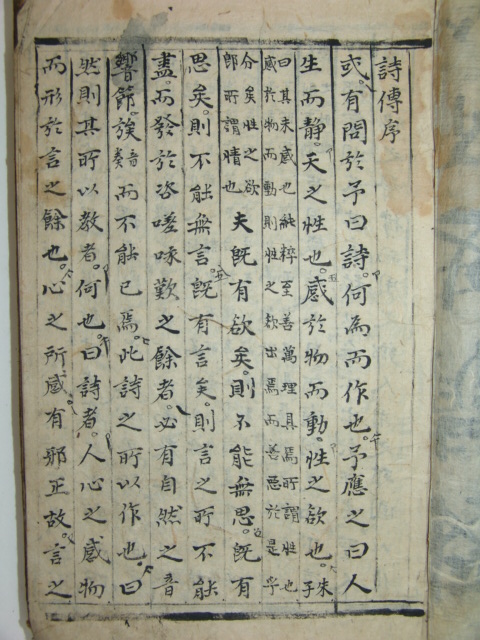 詩傳序
或有問於予曰詩何為而作也予應之曰人
生而静天之性也感於物而動性之欲也朱子
曰其未感也純粹至善萬理具焉所謂性也
感於物而動則性之欲出焉而善惡於是乎
分矣性之欲
即所謂情也
夫既有欲矣則不能無思既有
思矣則不能無言既有言矣則言之所不能
盡而發於咨嗟咏歎之餘者必有自然之音
響節族音奏而不能已焉此詩之所以作也曰
然則其所以教者何也曰詩者人心之感物
而形於言之餘也心之所感有邪正故言之